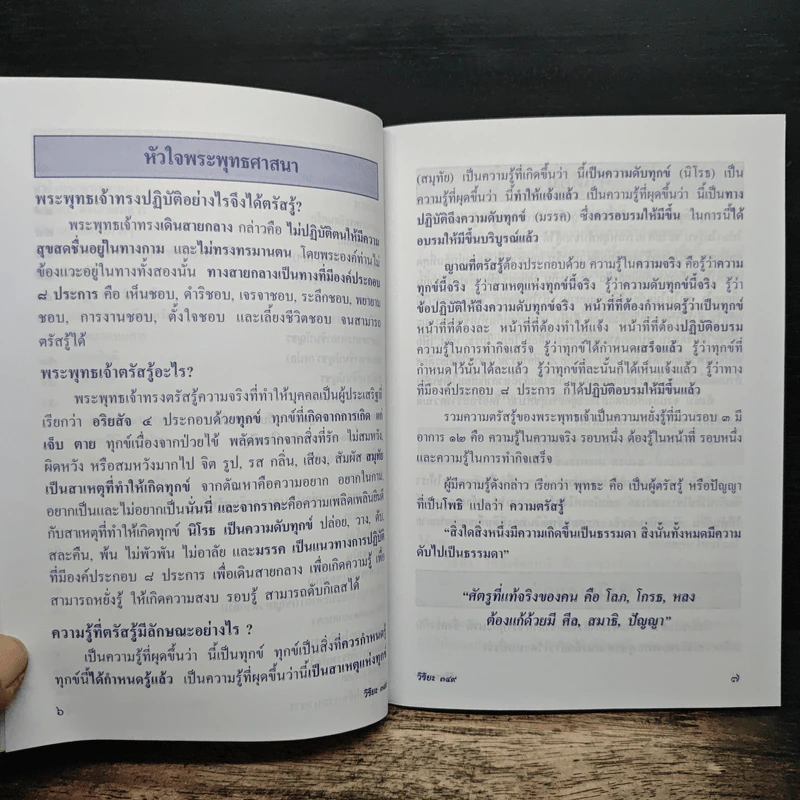 หัวใจพระพุทธศาสนา
พระพุทธเจ้าทรงปฏิบัติอย่างไรจึงได้ตรัสรู้?
พระพุทธเจ้าทรงเดินสายกลาง กล่าวคือ ไม่ปฏิบัติตนให้มีความ
สุขสดชื่นอยู่ในทางกาม และไม่ทรงทรมานตน โดยพระองค์ท่านไม่
ข้องแวะอยู่ในทางทั้งสองนั้น ทางสายกลางเป็นทางที่มีองค์ประกอบ
๘ ประการ คือ เห็นชอบ, ดำริชอบ, เจรจาชอบ, ระลึกชอบ, พยายาม
ชอบ, การงานชอบ, ตั้งใจชอบ และเลี้ยงชีวิตชอบ จนสามารถ
ตรัสรู้ได้
พระพุทธเจ้าตรัสรู้อะไร?
พระพุทธเจ้าทรงตรัสรู้ความจริงที่ทำให้บุคคลเป็นผู้ประเสริฐที่
เรียกว่า อริยสัจ ๔ ประกอบด้วยทุกข์ ทุกข์ที่เกิดจากการเกิด แก่
เจ็บ ตาย ทุกข์เนื่องจากป่วยไข้ พลัดพรากจากสิ่งที่รัก ไม่สมหวัง
ผิดหวัง หรือสมหวังมากไป จิต รูป, รส กลิ่น, เสียง, สัมผัส สมุทัย
เป็นสาเหตุที่ทำให้เกิดทุกข์ จากตัณหาคือความอยาก อยากในกาม,
อยากเป็นและไม่อยากเป็นนั่นนี่ และจากราคะคือความเพลิดเพลินยินดี
กับสาเหตุที่ทำให้เกิดทุกข์ นิโรธ เป็นความดับทุกข์ ปล่อย, วาง, ดับ,
สละคืน, พ้น ไม่พัวพัน ไม่อาลัย และมรรค เป็นแนวทางการปฏิบัติ
ที่มีองค์ประกอบ ๘ ประการ เพื่อเดินสายกลาง เพื่อเกิดความรู้ เพื่อ
สามารถหยั่งรู้ ให้เกิดความสงบ รอบรู้ สามารถดับกิเลสได้
ความรู้ที่ตรัสรู้มีลักษณะอย่างไร ?
เป็นความรู้ที่ผุดขึ้นว่า นี้เป็นทุกข์ ทุกข์เป็นสิ่งที่ควรกำหนดรู้
ทุกข์นี้ได้กำหนดรู้แล้ว เป็นความรู้ที่ผุดขึ้นว่านี้เป็นสาเหตุแห่งทุกข์
วิริยะ
๖
(สมุทัย) เป็นความรู้ที่เกิดขึ้นว่า นี้เป็นความดับทุกข์ (นิโรธ) เป็น
ความรู้ที่ผุดขึ้นว่า นี้ทำให้แจ้งแล้ว เป็นความรู้ที่ผุดขึ้นว่า นี้เป็นทาง
ปฏิบัติถึงความดับทุกข์ (มรรค) ซึ่งควรอบรมให้มีขึ้น ในการนี้ได้
อบรมให้มีขึ้นบริบูรณ์แล้ว
ญาณที่ตรัสรู้ต้องประกอบด้วย ความรู้ในความจริง คือรู้ว่าความ
ทุกข์นี้จริง รู้ว่าสาเหตุแห่งทุกข์นี้จริง รู้ว่าความดับทุกข์นี้จริง รู้ว่า
ข้อปฏิบัติให้ถึงความดับทุกข์จริง หน้าที่ที่ต้องกำหนดรู้ว่าเป็นทุกข์
หน้าที่ที่ต้องละ หน้าที่ที่ต้องทำให้แจ้ง หน้าที่ที่ต้องปฏิบัติอบรม
ความรู้ในการทำกิจเสร็จ รู้ว่าทุกข์ได้กำหนดเสร็จแล้ว รู้ว่าทุกข์ที่
กำหนดไว้นั้นได้ละแล้ว รู้ว่าทุกข์ที่ละนั้นก็ได้เห็นแจ้งแล้ว รู้ว่าทาง
ที่มีองค์ประกอบ ๘ ประการ ก็ได้ปฏิบัติอบรมให้มีขึ้นแล้ว
รวมความตรัสรู้ของพระพุทธเจ้าเป็นความหยั่งรู้ที่มีวนรอบ ๓ มี
อาการ ๑๒ คือ ความรู้ในความจริง รอบหนึ่ง ต้องรู้ในหน้าที่ รอบหนึ่ง
และความรู้ในการทำกิจเสร็จ
ผู้มีความรู้ดังกล่าว เรียกว่า พุทธะ คือ เป็นผู้ตรัสรู้ หรือปัญญา
ที่เป็นโพธิ แปลว่า ความตรัสรู้
“สิ่งใดสิ่งหนึ่งมีความเกิดขึ้นเป็นธรรมดา สิ่งนั้นทั้งหมดมีความ
ดับไปเป็นธรรมดา”
“ศัตรูที่แท้จริงของคน คือ โลภ, โกรธ, หลง
ต้องแก้ด้วยมี ศีล, สมาธิ, ปัญญา”
วิริยะ ๓๔๙
๗